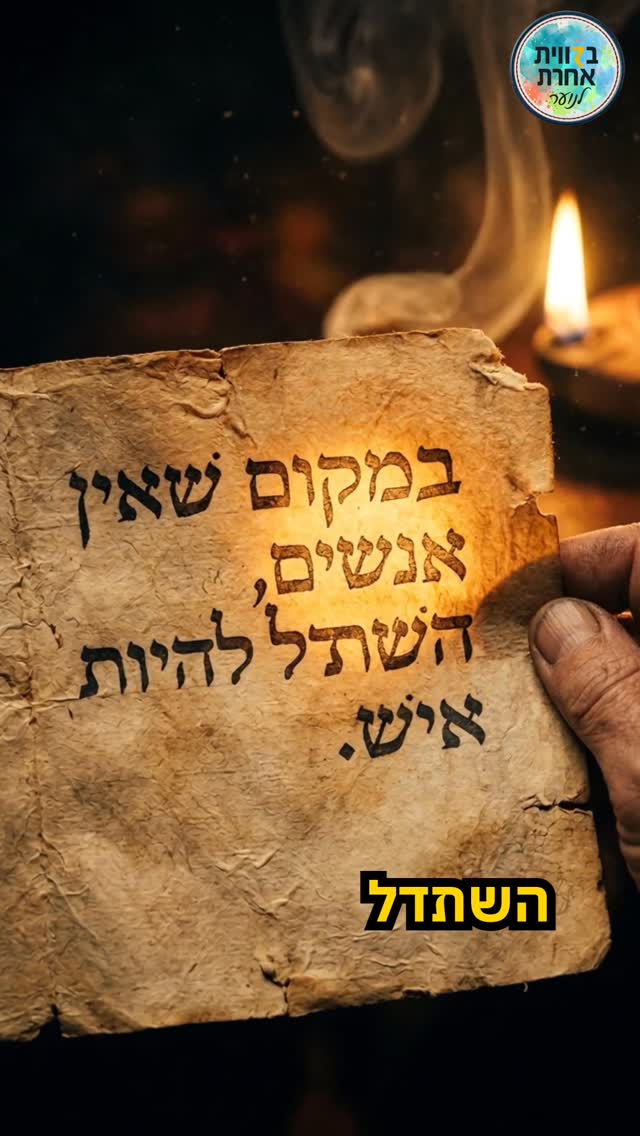 בזווית
אחרת
לנוער
במקום שׁאין
אנשים,
השׁתל להיות
אישׁ.
השתדל